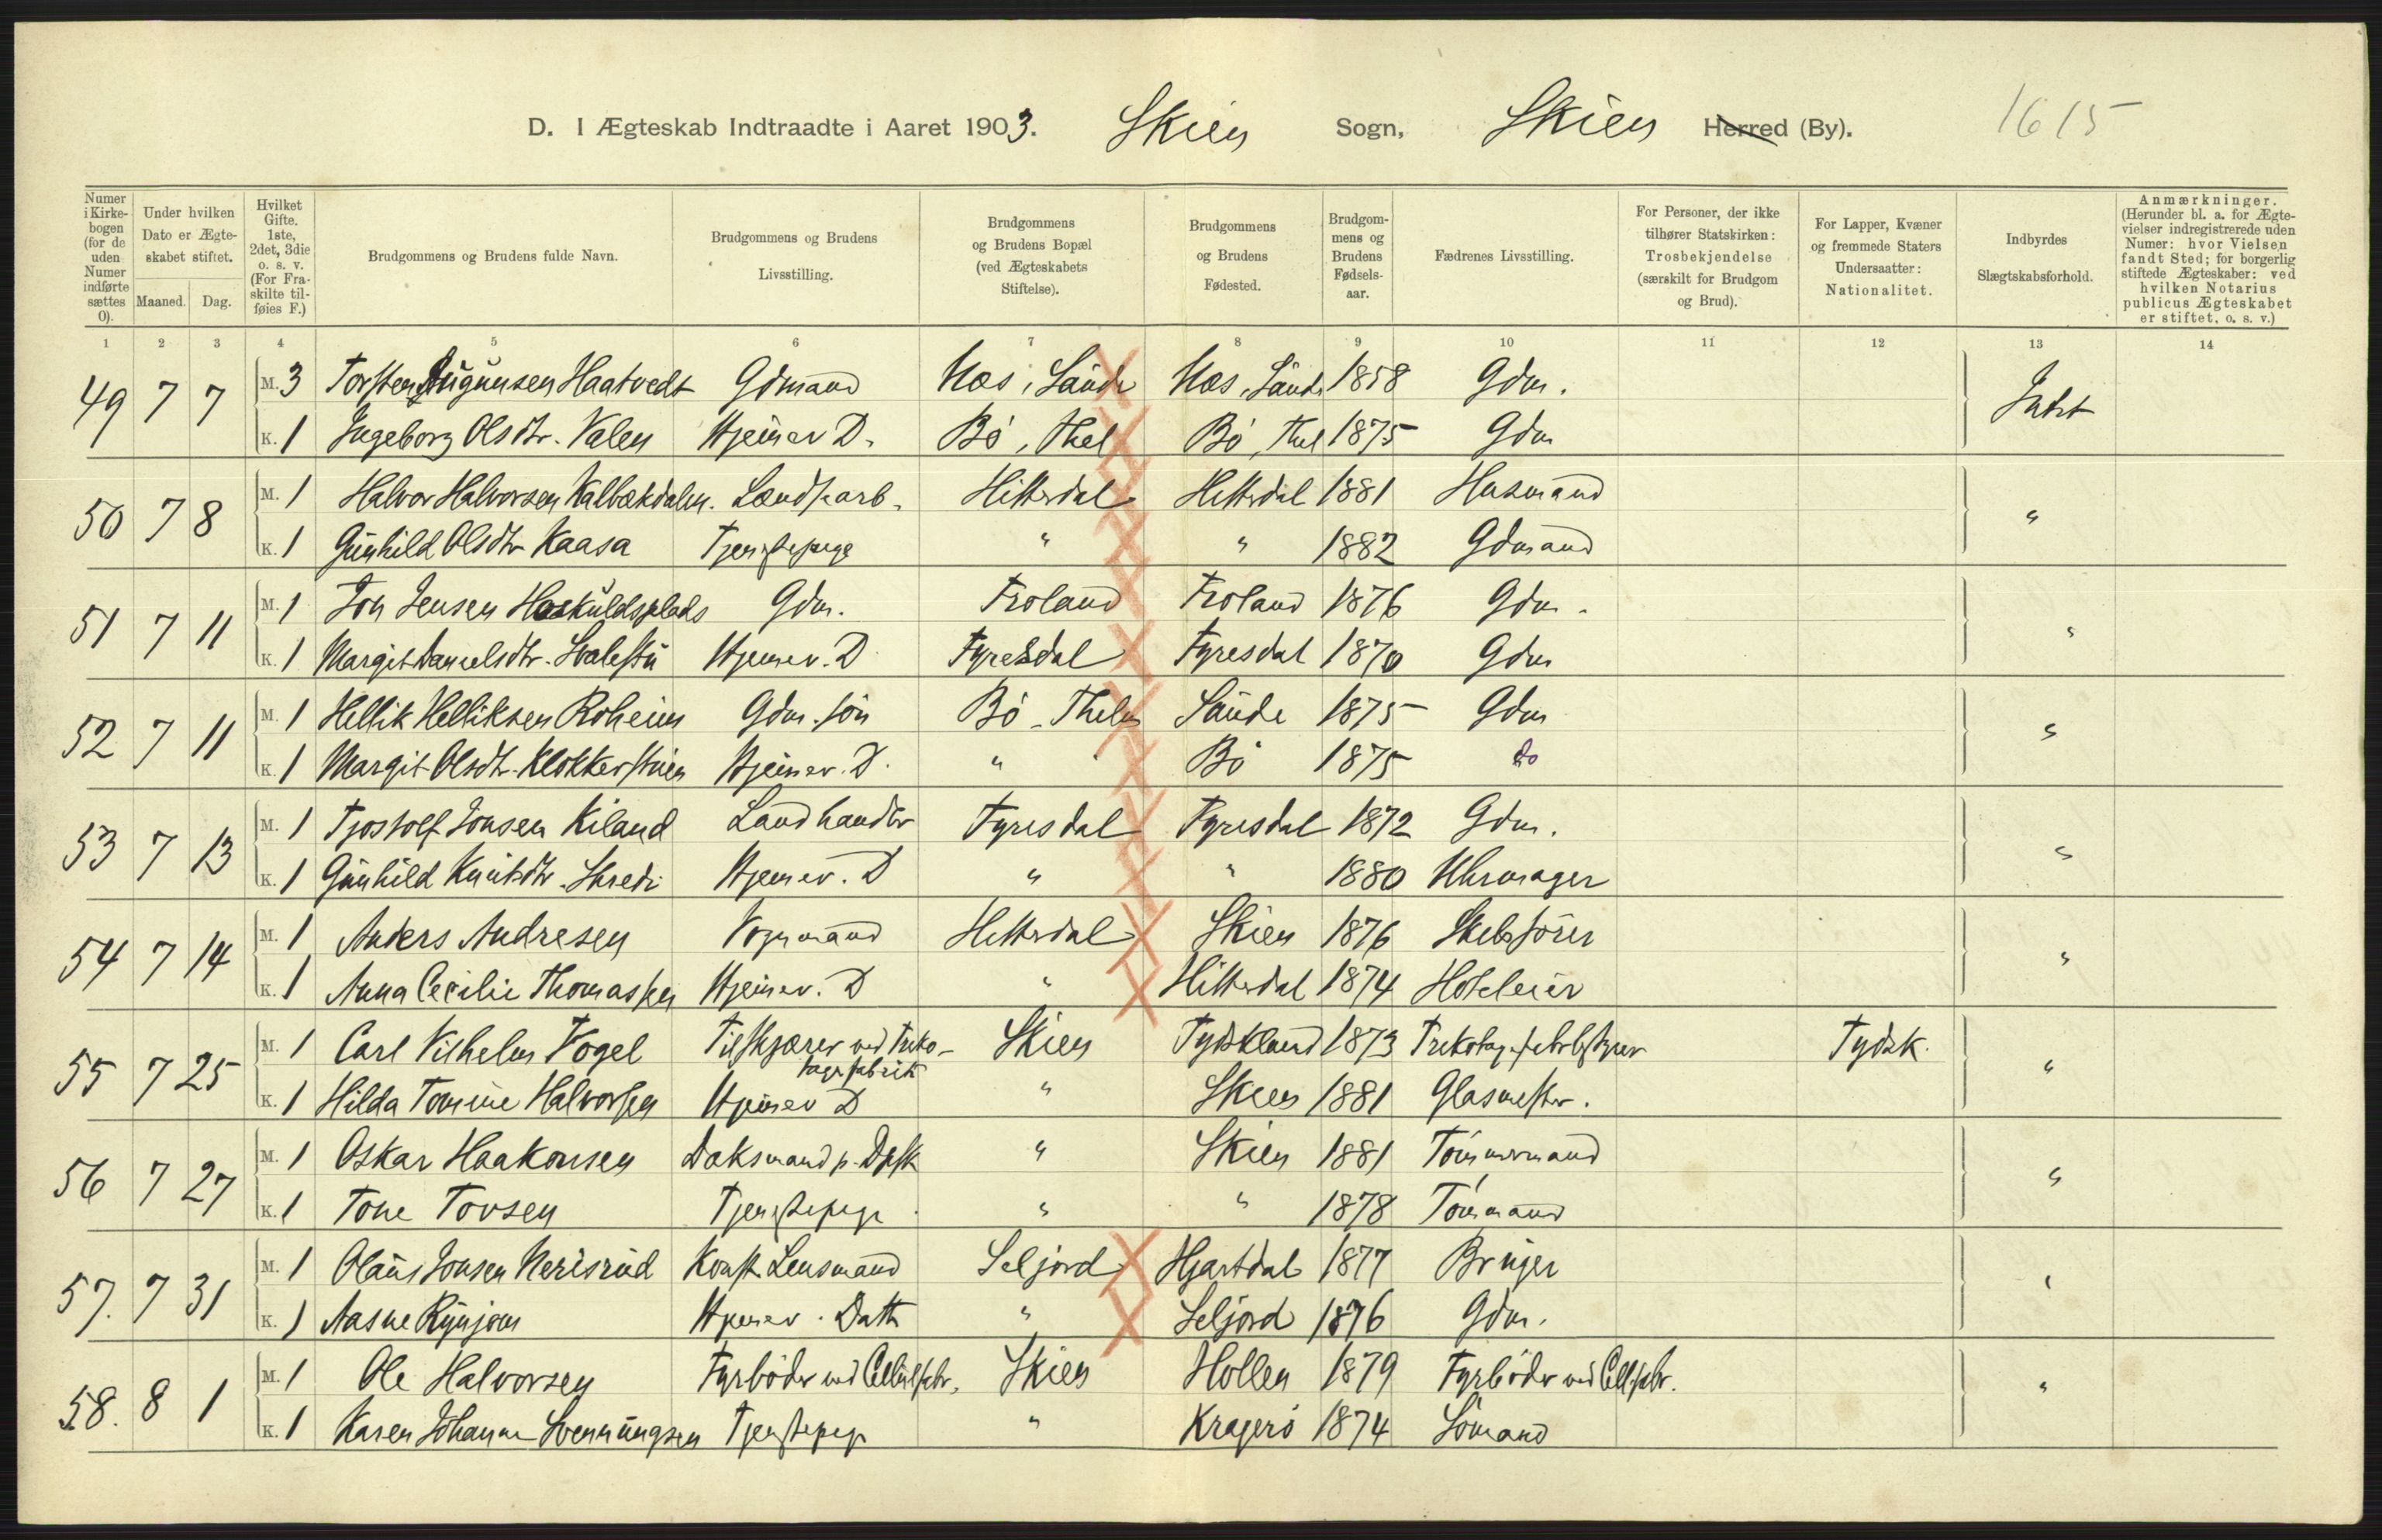 D. I Ægteskab Indtraadte i Aaret 1903. Skien Sogn, Skien Herred (By). 1615
Numer i Kirkebogen (for de uden Numer indførte sættes 0).
Under hvilken Dato er Ægteskabet stiftet.
Maaned. Dag.
Hvilket Gifte. 1ste, 2det, 3die o. s. v. (For Fraskilte tilføies F.)
Brudgommens og Brudens fulde Navn.
Brudgommens og Brudens Livsstilling.
Brudgommens og Brudens Bopæl (ved Ægteskabets Stiftelse).
Brudgommens og Brudens Fødested.
Brudgommens og Brudens Fødselsaar.
Fædrenes Livsstilling.
For Personer, der ikke tilhører Statskirken: Trosbekjendelse (særskilt for Brudgom og Brud).
For Lapper, Kvæner og fremmede Staters Undersaatter: Nationalitet.
Indbyrdes Slægtskabsforhold.
Anmærkninger. (Herunder bl. a. for Ægtevielser indregistrerede uden Numer: hvor Vielsen fandt Sted; for borgerlig stiftede Ægteskaber: ved hvilken Notarius publicus Ægteskabet er stiftet, o. s. v.)
1 2 3 4 5 6 7 8 9 10 11 12 13 14
49 7 7 M. 3 Torsten Haatvedt Gdmand Næs, Saude Næs, Saude 1858 Gdm. Intet
K. 1 Ingeborg Olsdtr. Valen Hjemev D. Bö, Thel Bö, Thel 1875 Gdm
50 7 8 M. 1 Halvor Halvorsen Kalbækdalen. Landsarb. Hitterdal Hitterdal 1881 Husmand "
K. 1 Gunhild Olsdtr Kaasa Tjenestepige " " 1882 Gdmand
51 7 11 M. 1 Jon Jensen Haskuldsplads Gdm. Froland Froland 1876 Gdm. "
K. 1 Margit Danielsdtr. Hjemev. D Fyresdal Fyresdal 1870 Gdm
52 7 11 M. 1 Hellik Helliksen Roheim Gdm. sön Bö. Thelm Saude 1875 Gdm "
K. 1 Margit Olsdtr. Klokkerstuen Hjemev. D. " Bö 1875 do
53 7 13 M. 1 Tjostolf Jonsen Kiland Landhandlr Fyresdal Fyresdal 1872 Gdm. "
K. 1 Gunhild Knutsdtr. Hjemev. D " " 1880 Uhrmager
54 7 14 M. 1 Anders Andresen Vognmand Hitterdal Skien 1876 Skibsförer "
K. 1 Anna Cecilie Thomassen Hjemev. D " Hitterdal 1874 Hoteleier
55 7 25 M. 1 Carl Vilhelm Vogel Tilskjærer ved Triko- Skien Tydskland 1873 Tydsk. "
tagefabrik
K. 1 Hilda Tomine Halvorsen Hjemev D " Skien 1881 Glasmester.
56 7 27 M. 1 Oskar Haakonsen Daksmand p. Dpsk " Skien 1881 Tömmermand "
K. 1 Tone Tovsen Tjenestepige " " 1878 Tömmand
57. 7 31 M. 1 Olaus Jonsen Nerisrud Konst. Lensmand Seljord Hjartdal 1877 Bruger "
K. 1 Aasne Rynjom Hjemev. Datt " Seljord 1876 Gdm.
58. 8 1 M. 1 Ole Halvorsen Fyrböder ved Cellulfabr. Skien Hollen 1879 Fyrböder ved Cellfabr. "
K. 1 Karen Johanne Svennungsen Tjenestepige " Kragerö 1874 Sömand